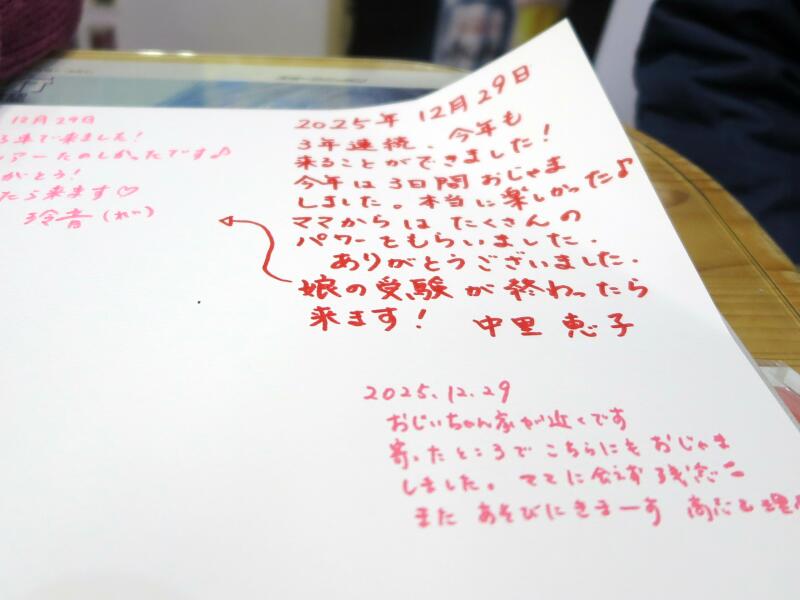 12月29日
3年で来ました!
ツアーたのしかったです♪
がとう!
たら来ます♡
玲音(れい)
2025年 12月29日
3年連続、今年も
来ることができました!
今年は3日間おじゃま
しました。本当に楽しかった♪
ママからは たくさんの
パワーをもらいました.
ありがとうございました.
娘の受験が終わったら
来ます! 中里 恵子
2025.12.29
おじいちゃん家が近くです
寄ったところでこちらにもおじゃま
しました。ママに会えず残念
また あそびにきまーす